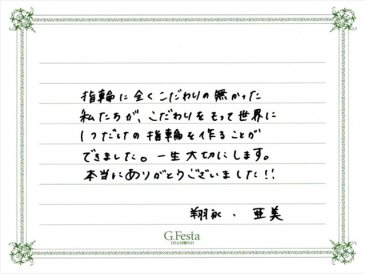 指輪に全くこだわりの無かった
私たちが、こだわりをもって世界に
1つだけの指輪を作ることが
できました。一生大切にします。
本当にありがとうございました!!
翔永・亜美
G.Festa
DIAMOND